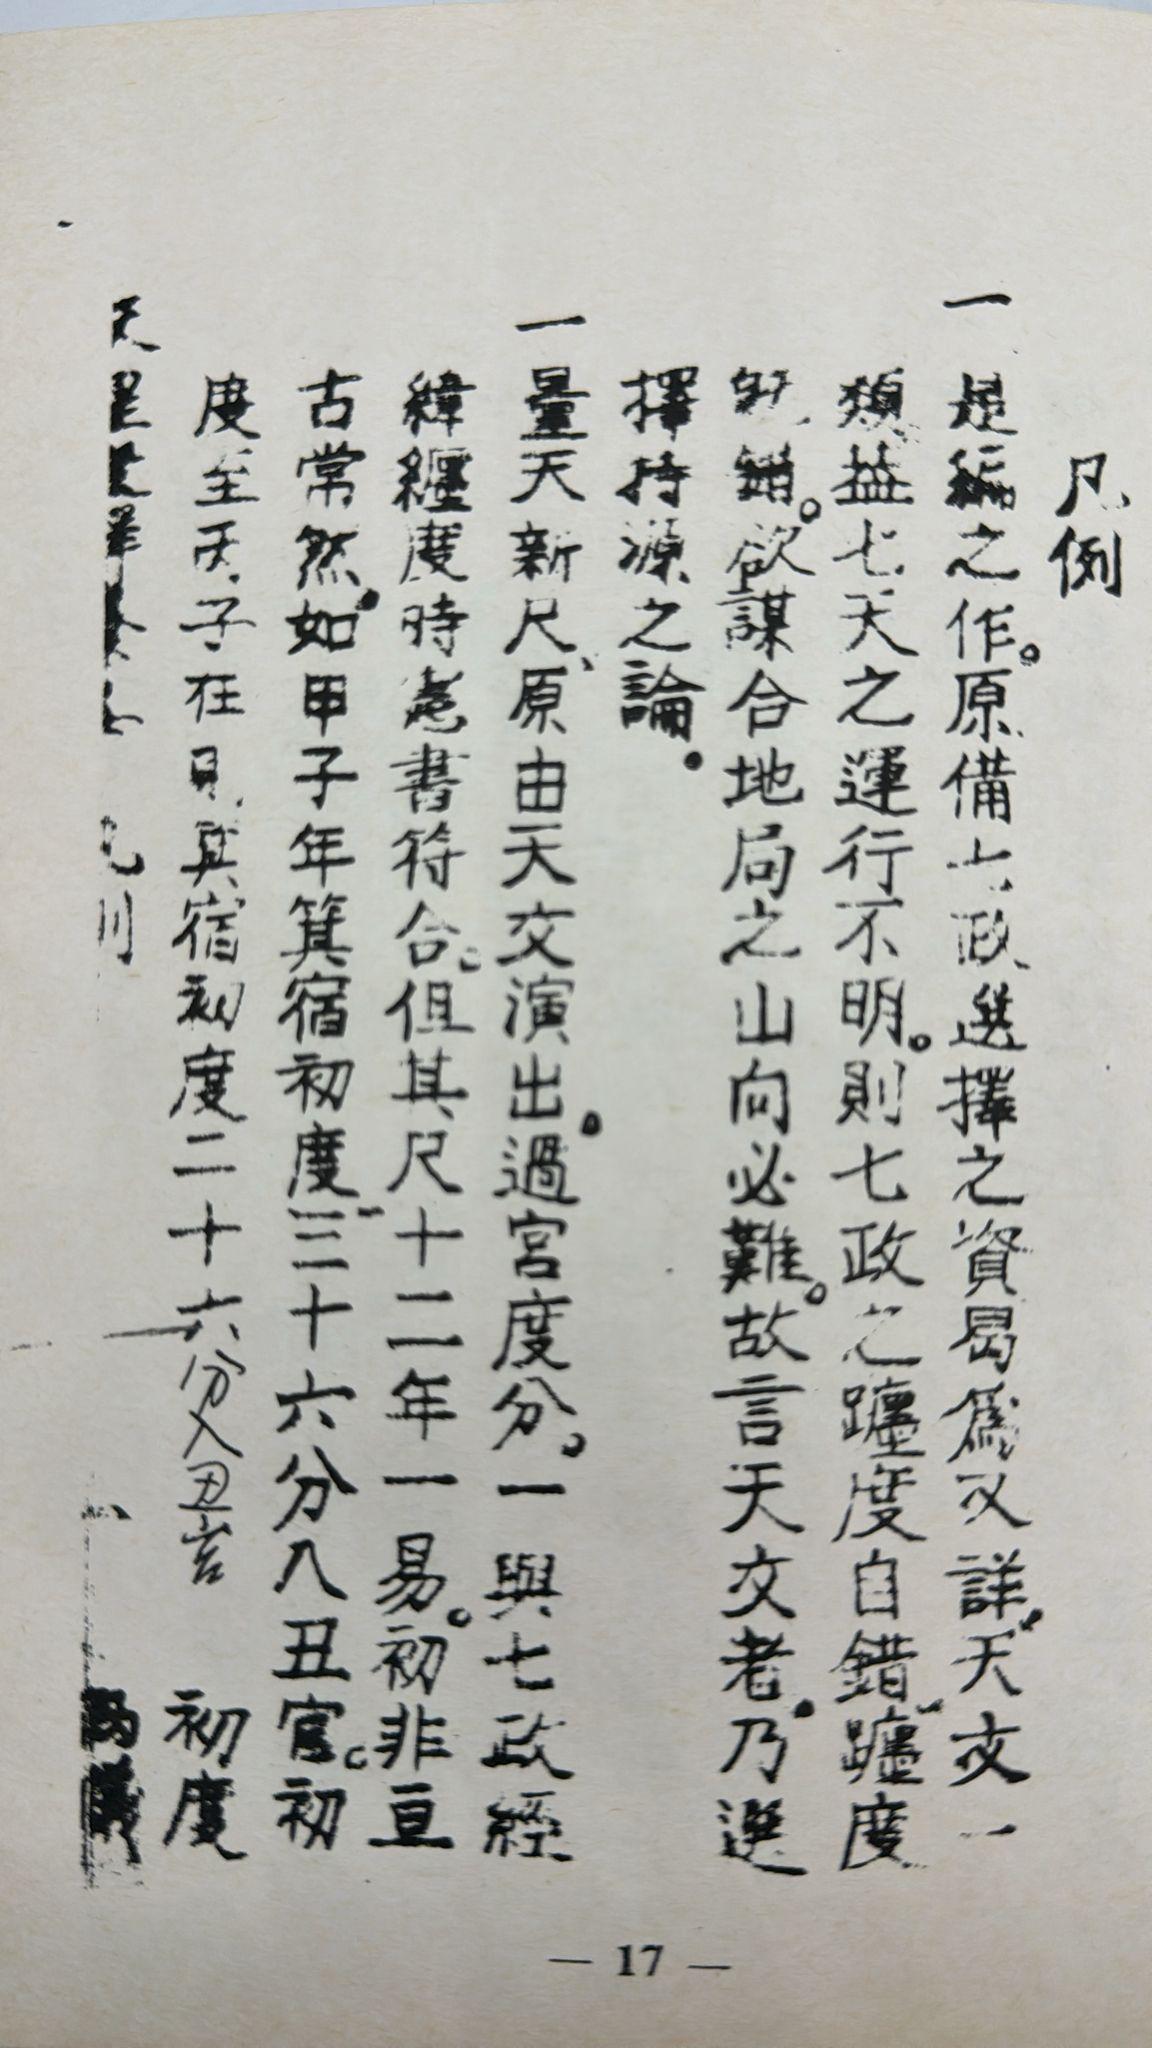 凡例
一是編之作。原備七政選擇之資曷為又詳。天文一
類益七天之運行不明。則七政之躔度自錯躔度
既錯。欲謀合地局之山向必難。故言天文者。乃選
擇持源之論。
一量天新尺、原由天文演出。過宮度分。一與七政經
緯纏度時憲書符合。但其尺十二年一易。初非亘
古常然。如甲子年箕宿初度三十六分入丑官。初
度至丙子在箕宿初度二十六分入丑宮 初度
— 17 —